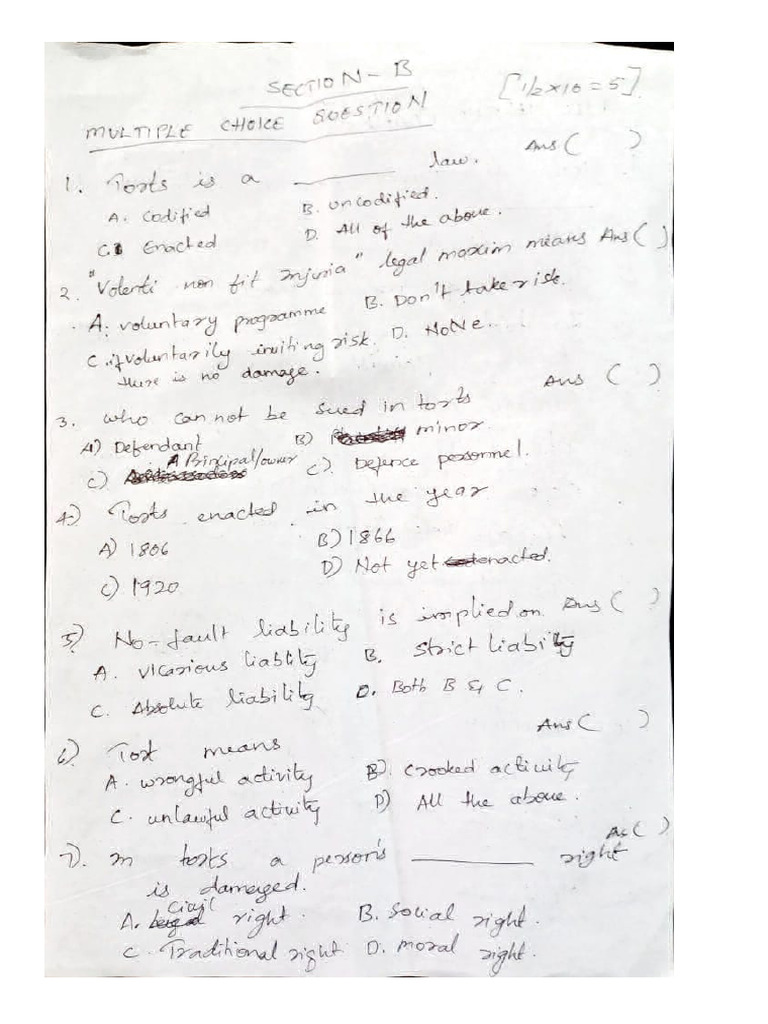 SECTION - B
[1/2 x 10 = 5]
MULTIPLE CHOICE QUESTION
1. Torts is a ________ law. Ans ( )
A. Codified B. uncodified.
C. Enacted D. All of the above.
2. "Volenti non fit Injuria" legal maxim means Ans ( )
A. voluntary programme B. Don't take risk.
C. if voluntarily inviting risk. D. NoNe.
there is no damage.
Ans ( )
3. who can not be sued in torts
A) Defendant B) minor
C) A Principal/owner C). Defence personnel.
4) Torts enacted in the year
A) 1806 B) 1866
C) 1920 D) Not yet enacted.
5) No-fault liability is implied on Ans ( )
A. vicarious liablity B. Strict liabity
C. Absolute liability D. Both B & C.
Ans ( )
6) Tort means
A. wrongful activity B). crooked activity
C. unlawful activity D) All the above.
As ( )
7). In torts a person's ________ right
is damaged.
A. Civil right. B. Social right.
C. Traditional right D. moral right.